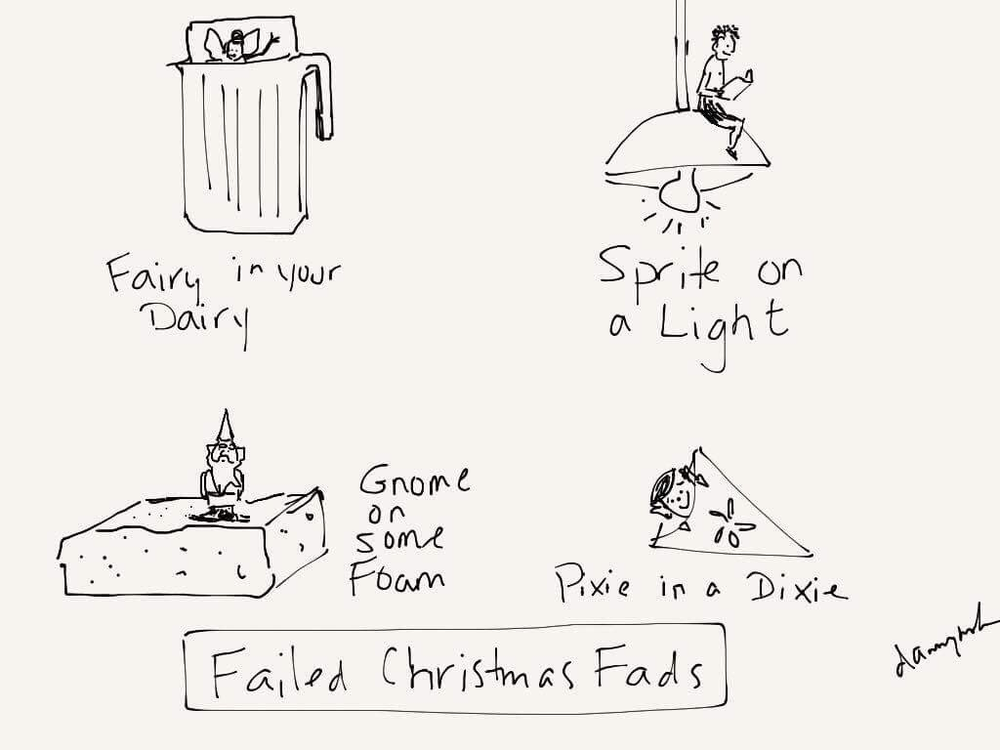 Fairy in your
Dairy
Sprite on
a Light
Gnome
on
some
Foam
Pixie in a Dixie
Failed Christmas Fads